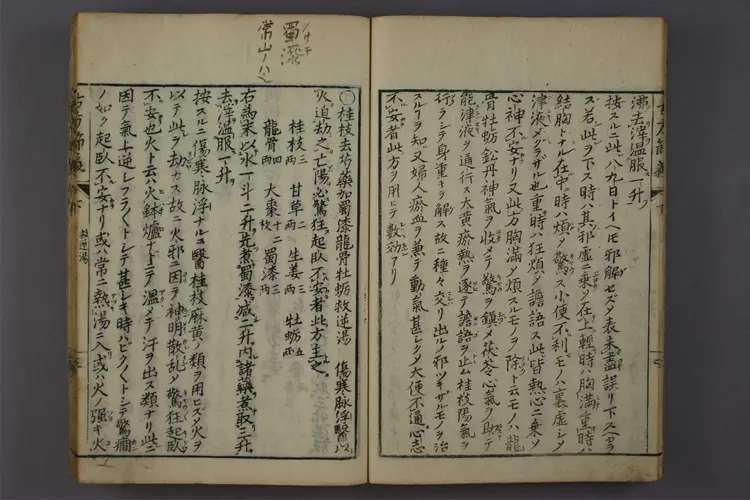 沸去滓温服一升
按スルニ此八九日トイヘモ邪解セズタ表未盡誤リ下スヘカラ
ス若此ヲ下ス時ハ其邪虚ニ乗シ在上輕時ハ胸満重時ハ
結胸トナル在中時ハ煩シ驚ス小便不利モノハ裏虚シテ
津液メグラザル也重時ハ狂煩シ譫語ス此皆熱心ニ乗ソ
心神不安ナリ又此方胸満シ煩スルモノヲ除ト云モノハ龍
骨牡蛎鉛丹神氣ヲ收メ驚ヲ鎮メ茯苓心氣ヲ助テ
能津液ヲ通行ス大黄瘀熱ヲ逐テ譫語ヲ止ム桂枝陽氣ヲ
行ラシテ身重キヲ解ス故ニ種々交リ出ルノ邪ツキザルモノヲ治
スルヿヲ知又婦人瘀血ヲ兼テ動氣甚シクメ大便不通心志
不安者此方ヲ用ヒテ數效アリ
蜀漆
常山ノハ也
〇桂枝去芍藥加蜀漆龍骨牡蛎救逆湯 傷寒脉浮醫以
火迫劫之亡陽必驚狂起臥不安者此方主之
桂枝三兩 甘草二兩 生姜三兩 牡蛎五兩
龍骨四兩 大棗十二枚 蜀漆三兩
右為末以水一斗二升先煮蜀漆減二升内諸藥煮取三升
去滓温服一升
按スルニ傷寒脉浮ナルニ醫桂枝麻黄ノ類ヲ用ヒズ火ヲ
以テ此ヲ劫カス故ニ火邪ニ因ヲ神明散乱シ驚狂起臥
不安也火ト云ハ火鉢爐ナトニテ温メテ汗ヲ出ス類ナリ此ニ
因テ氣上逆シフラ〱トシテ甚シキ時ハビク〱トシテ驚癇
ノ如ク起臥不安ナリ或ハ常ニ熱湯ニ入或ハ火ノ強キ火
救逆湯